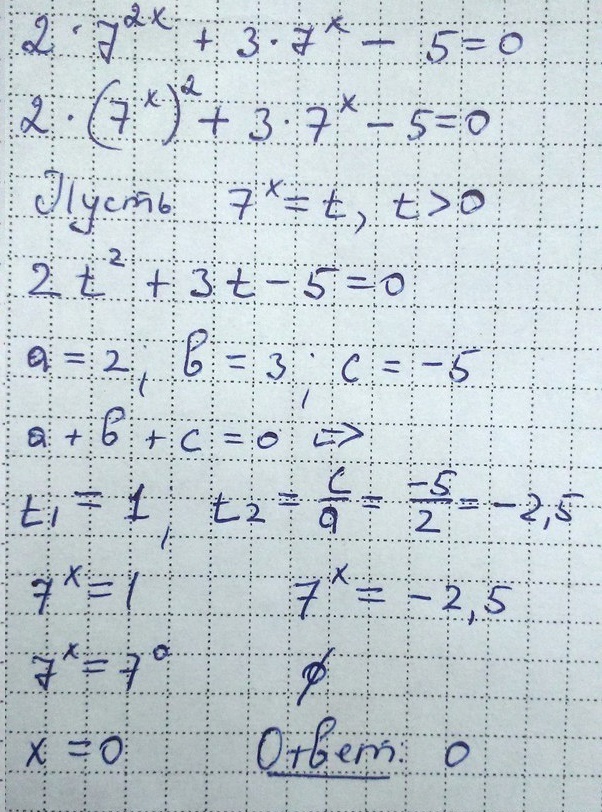 2 · 7^{2x} + 3 · 7^x − 5 = 0
2 · (7^x)^2 + 3 · 7^x − 5 = 0
Пусть 7^x = t, t > 0
2t^2 + 3t − 5 = 0
a = 2; b = 3; c = −5
a + b + c = 0 =>
t_1 = 1; t_2 = c/a = −5/2 = −2,5
7^x = 1 7^x = −2,5
7^x = 7^0 ∅
x = 0 Ответ: 0